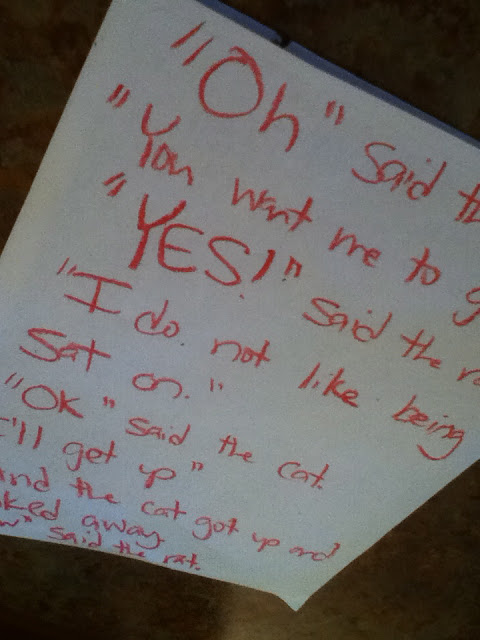 "Oh" said th
"You want me to g
"YES!" said the ra
"I do not like being
sat on."
"OK" said the cat.
I'll get up"
and the cat got up and
ked away.
w" said the rat.